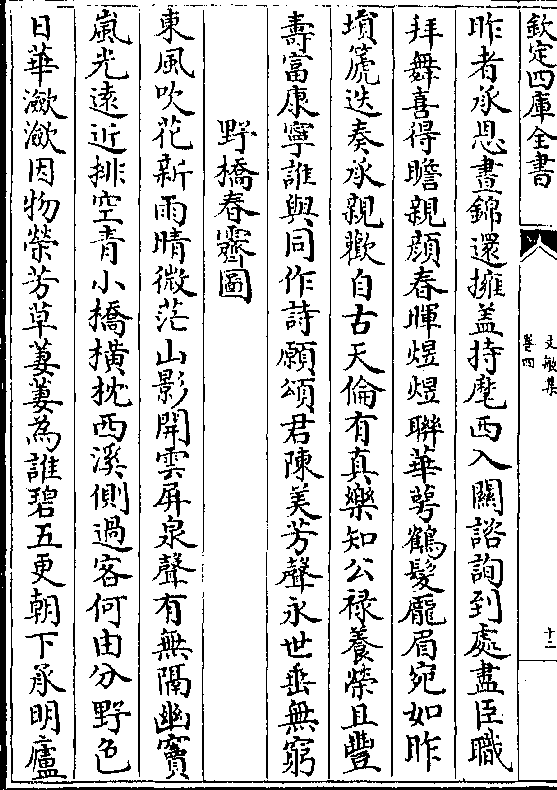 欽定四庫全書
文敏集
卷四
十二
昨者承恩晝錦還擁盖持麾西入關諮詢到處盡臣職
拜舞喜得瞻親顔春暉煜煜聯華萼鶴髪龎眉宛如昨
塤箎迭奏承親歡自古天倫有真樂知公禄養榮且豐
壽富康寧誰與同作詩願頌君陳美芳聲永世垂無窮
野橋春霽圖
東風吹花新雨晴微茫山影開雲屏泉聲有無隔幽竇
嵐光遠近排空青小橋横枕西溪側過客何由分野色
日華瀲瀲因物榮芳草萋萋為誰碧五更朝下承明廬